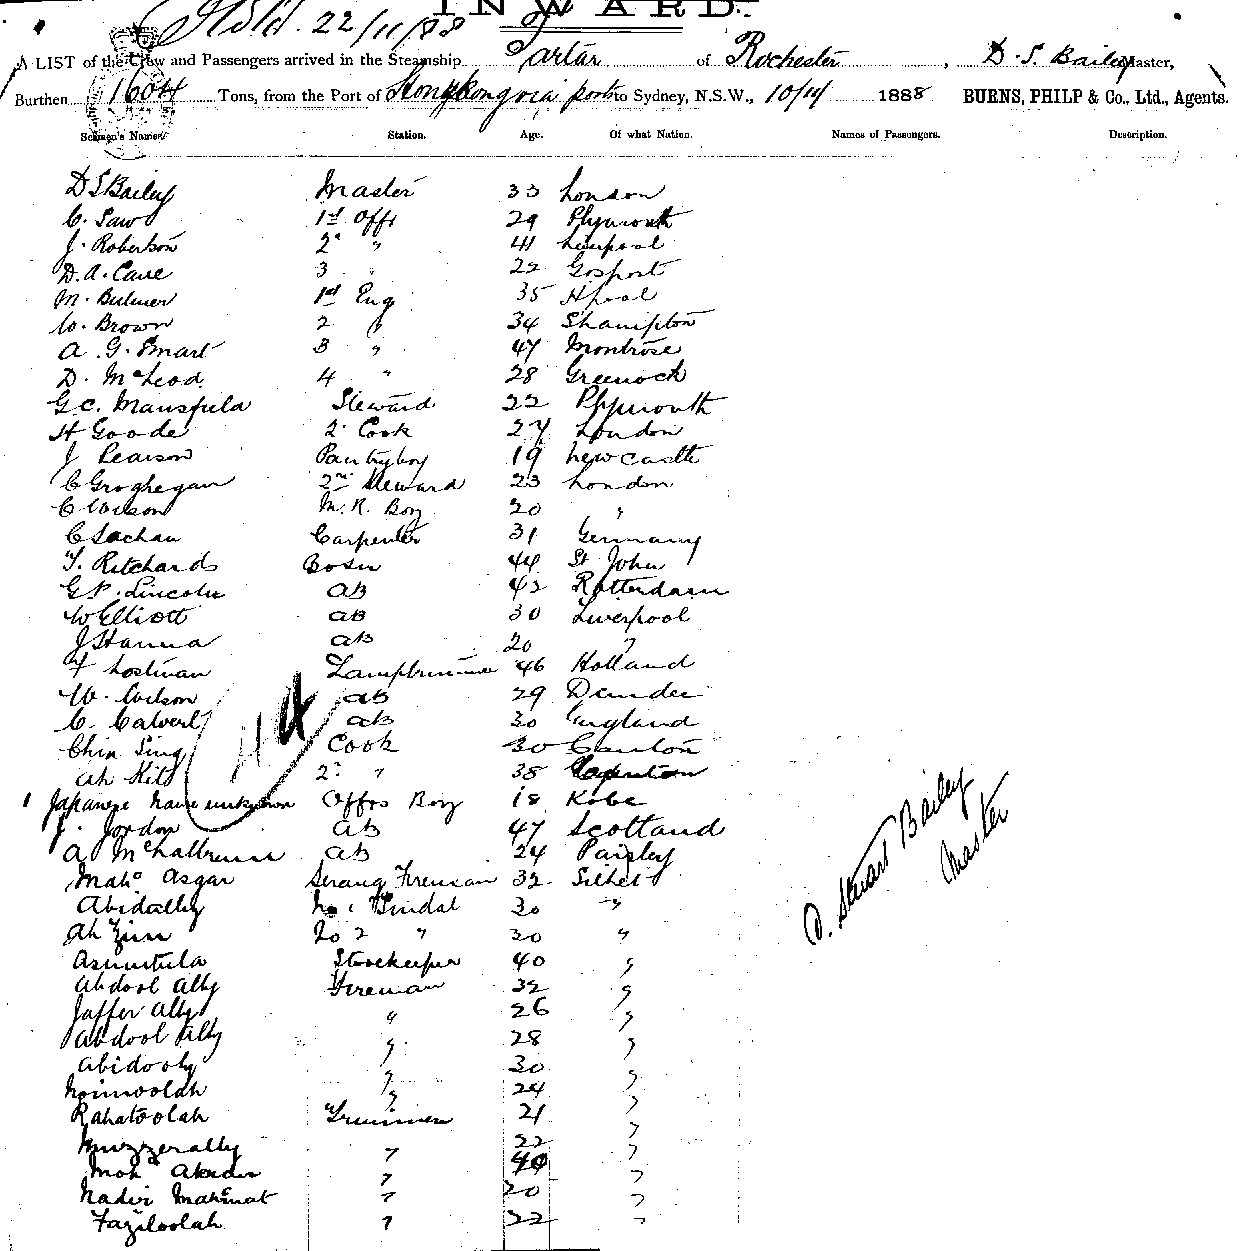 INWARD.
22/11/88
A LIST of the Crew and Passengers arrived in the Steamship Tartar of Rochester, D. S. Bailey Master,
Burthen 1604 Tons, from the Port of Hongkong via ports to Sydney, N.S.W., 10/11 1888 BURNS, PHILP & Co., Ltd., Agents.
Seamen's Names Station. Age. Of what Nation. Names of Passengers. Description.
D S Bailey Master 33 London
C. Saw 1st Offr 29 Plymouth
J. Robertson 2 " 41 Liverpool
D. A. Cave 3 " 22 Gosport
M. Bulmer 1st Eng 35 Hpool
W. Brown 2 " 34 Shampton
A. G. Smart 3 " 47 Montrose
D. McLeod 4 " 28 Greenock
G C. Mansfield Steward 22 Plymouth
H Goode 2 Cook 27 London
J Pearson Pantryboy 19 Newcastle
C Groghegan 2nd Steward 23 London
C Wilson M. R. Boy 20 "
C Sachau Carpenter 31 Germany
T. Ritchards Bosn 44 St John
G P. Lincoln AB 42 Rotterdam
W Elliott AB 30 Liverpool
J Hanna AB 20 "
F Lostman Lamptrimmer 46 Holland
W. Wilson AB 29 Dundee
C. Calvert AB 30 England
Chin Sing Cook 30 Canton
Ah Kit 2 " 38 Canton
1 Japanese name unknown Offrs Boy 18 Kobe
J. Jordon AB 47 Scotland
A McHallrum AB 24 Paisley
Maho Asgar Serang Fireman 32 Silhet
Abidally No 1 Tindal 30 "
Ah Zim No 2 " 30 "
Asimutula Storekeeper 40 "
Abdool Ally Fireman 32 "
Jaffer Ally " 26 "
Abdool Ally " 28 "
Abidooly " 30 "
Noimoolah " 24 "
Rahatoolah Trimmer 21 "
Muzzerally " 22 "
Moh " 40 "
Nadir Mahmat " 20 "
Faziloolah " 22 "
D. Stuart Bailey
Master